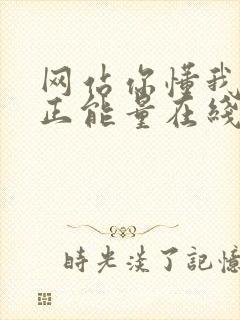 网站你懂我
正能量在线
時光淡了記憶